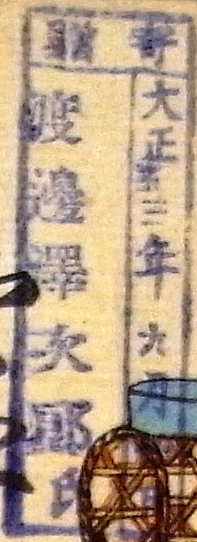 寄贈
大正十三年九月
渡邊澤次郎氏